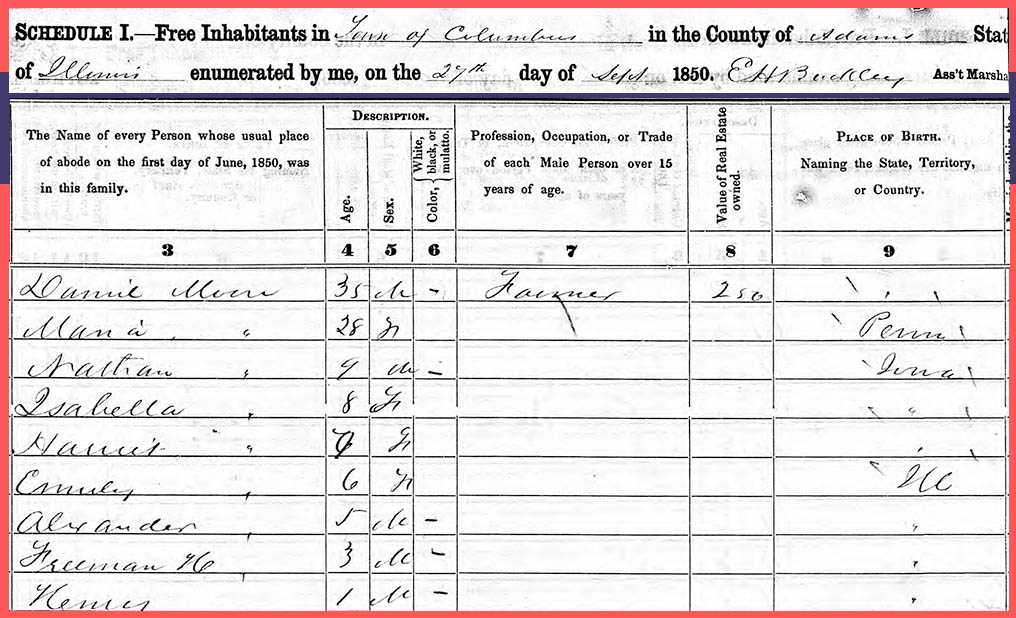 SCHEDULE I.—Free Inhabitants in Town of Columbus in the County of Adams Stat
of Illinois enumerated by me, on the 27th day of Sept 1850. E H Buckley Ass't Marsha
The Name of every Person whose usual place of abode on the first day of June, 1850, was in this family.
DESCRIPTION.
Age.
Sex.
Color, { White, black, or mulatto.
Profession, Occupation, or Trade of each Male Person over 15 years of age.
Value of Real Estate owned.
PLACE OF BIRTH. Naming the State, Territory, or Country.
3 4 5 6 7 8 9
Daniel Moore 35 M - Farmer 250 "
Maria " 28 F Penn
Nathan " 9 M - Iowa
Isabella " 8 F "
Harriet " 7 F "
Emily " 6 F Ill
Alexander " 5 M - "
Freeman H " 3 M - "
Henry 1 M - "